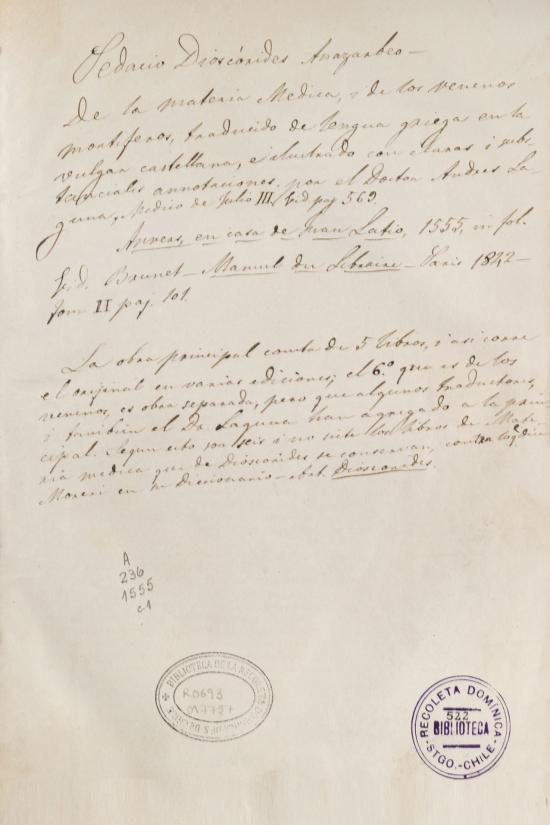 Pedacio Dioscórides Anazarbeo—
De la materia Medica, i de los venenos
mortiferos, traducido de lengua griega en la
vulgar castellana, e ilustrado con claras i subs-
tanciales annotaciones por el Doctor Andres La-
guna, Medico de Julio III, Vid. paj 569.
Anvers, en casa de Juan Latio, 1555, in fol.
Vid. Brunet—Manuel du Libraire—Paris 1842—
tom II paj. 101.
La obra principal consta de 5 libros, i asi corre
el orijinal en varias ediciones; el 6.º que es de los
venenos, es obra separada, pero que algunos traductores,
i tambien el Dr. Laguna han agregado a la prin-
cipal. Segun esto son seis i no siete los libros de Mate-
ria medica que de Dioscórides se conservan, contra lo q.e dice
Moreri en su Diccionario—abt. Dioscorides.
A
236
1555
c.1
BIBLIOTECA DE LA RECOLETA
R0693
RECOLETA DOMÍNICA
522
BIBLIOTECA
STGO.-CHILE